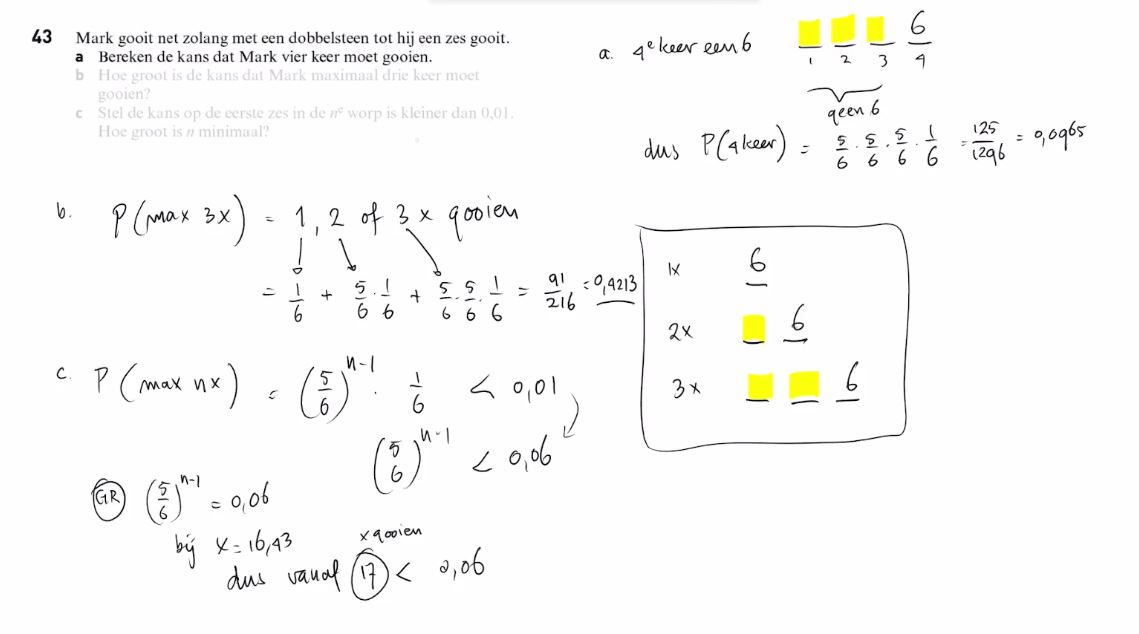 43 Mark gooit net zolang met een dobbelsteen tot hij een zes gooit.
a Bereken de kans dat Mark vier keer moet gooien.
b Hoe groot is de kans dat Mark maximaal drie keer moet
gooien?
c Stel de kans op de eerste zes in de nᵉ worp is kleiner dan 0,01.
Hoe groot is n minimaal?
a. 4ᵉ keer een 6
6
1 2 3 4
geen 6
dus P(4 keer) = 5/6 · 5/6 · 5/6 · 1/6 = 125/1296 = 0,0965
b. P(max 3x) = 1, 2 of 3 x gooien
= 1/6 + 5/6 · 1/6 + 5/6 · 5/6 · 1/6 = 91/216 = 0,4213
1x 6
2x 6
3x 6
c. P(max nx) = (5/6)ⁿ⁻¹ · 1/6 < 0,01
(5/6)ⁿ⁻¹ < 0,06
GR (5/6)ⁿ⁻¹ = 0,06
bij x = 16,43
x gooien
dus vanaf 17 < 0,06